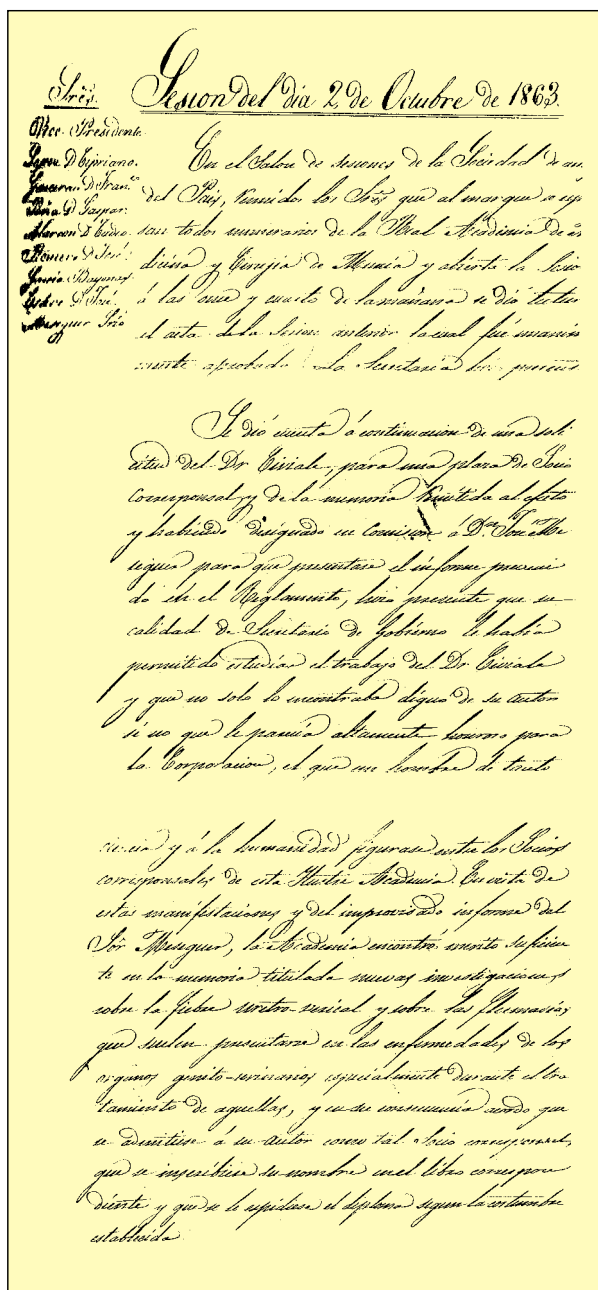 Sesion del dia 2 de Octubre de 1863.
Sres.
Vice-Presidente
D Cipriano.
D Fran.co
Peña D Gaspar.
Alarcon D Pedro
Romero D José
D José
Meseguer Srio
En el Salon de sesiones de la Sociedad de am
del Pais, reunidos los Sres que al margen a esp
san todos numerarios de la Real Academia de
dicina y Cirujia de Murcia y abierta la Sesio
á las once y cuarto de la mañana se dió lectu
el acta de la Sesion anterior la cual fué unanim
mente aprobada
Se dió cuenta á continuacion de una soli
citud del Dr Civiale, para una plaza de Socio
corresponsal, y de la memoria remitida al efecto
y habiendo designado en Comision á D. José Me
seguer para que presentase el informe preveni
do en el Reglamento, hizo presente que su
calidad de Secretario de Gobierno le habia
permitido estudiar el trabajo del Dr Civiale
y que no solo lo encontraba digno de su autor
si no que le parecia altamente honroso para
la Corporacion, el que un hombre de tanto
ciencia y á la humanidad figurase entre los Socios
corresponsales de esta Ilustre Academia. En vista de
estas manifestaciones y del improvisado informe del
Sor Meseguer, la Academia encontró merito suficien
te en la memoria titulada nuevas investigaciones
sobre la fiebre uretro-vesical y sobre las flecmasias
que suelen presentarse en las enfermedades de los
organos genito-urinarios especialmente durante el tra
tamiento de aquellas, y en su consecuencia acordo que
se admitiese á su autor como tal Socio corresponsal,
que se inscribiese su nombre en el libro correspon
diente y que se le espidiese el diploma segun la costumbre
establecida